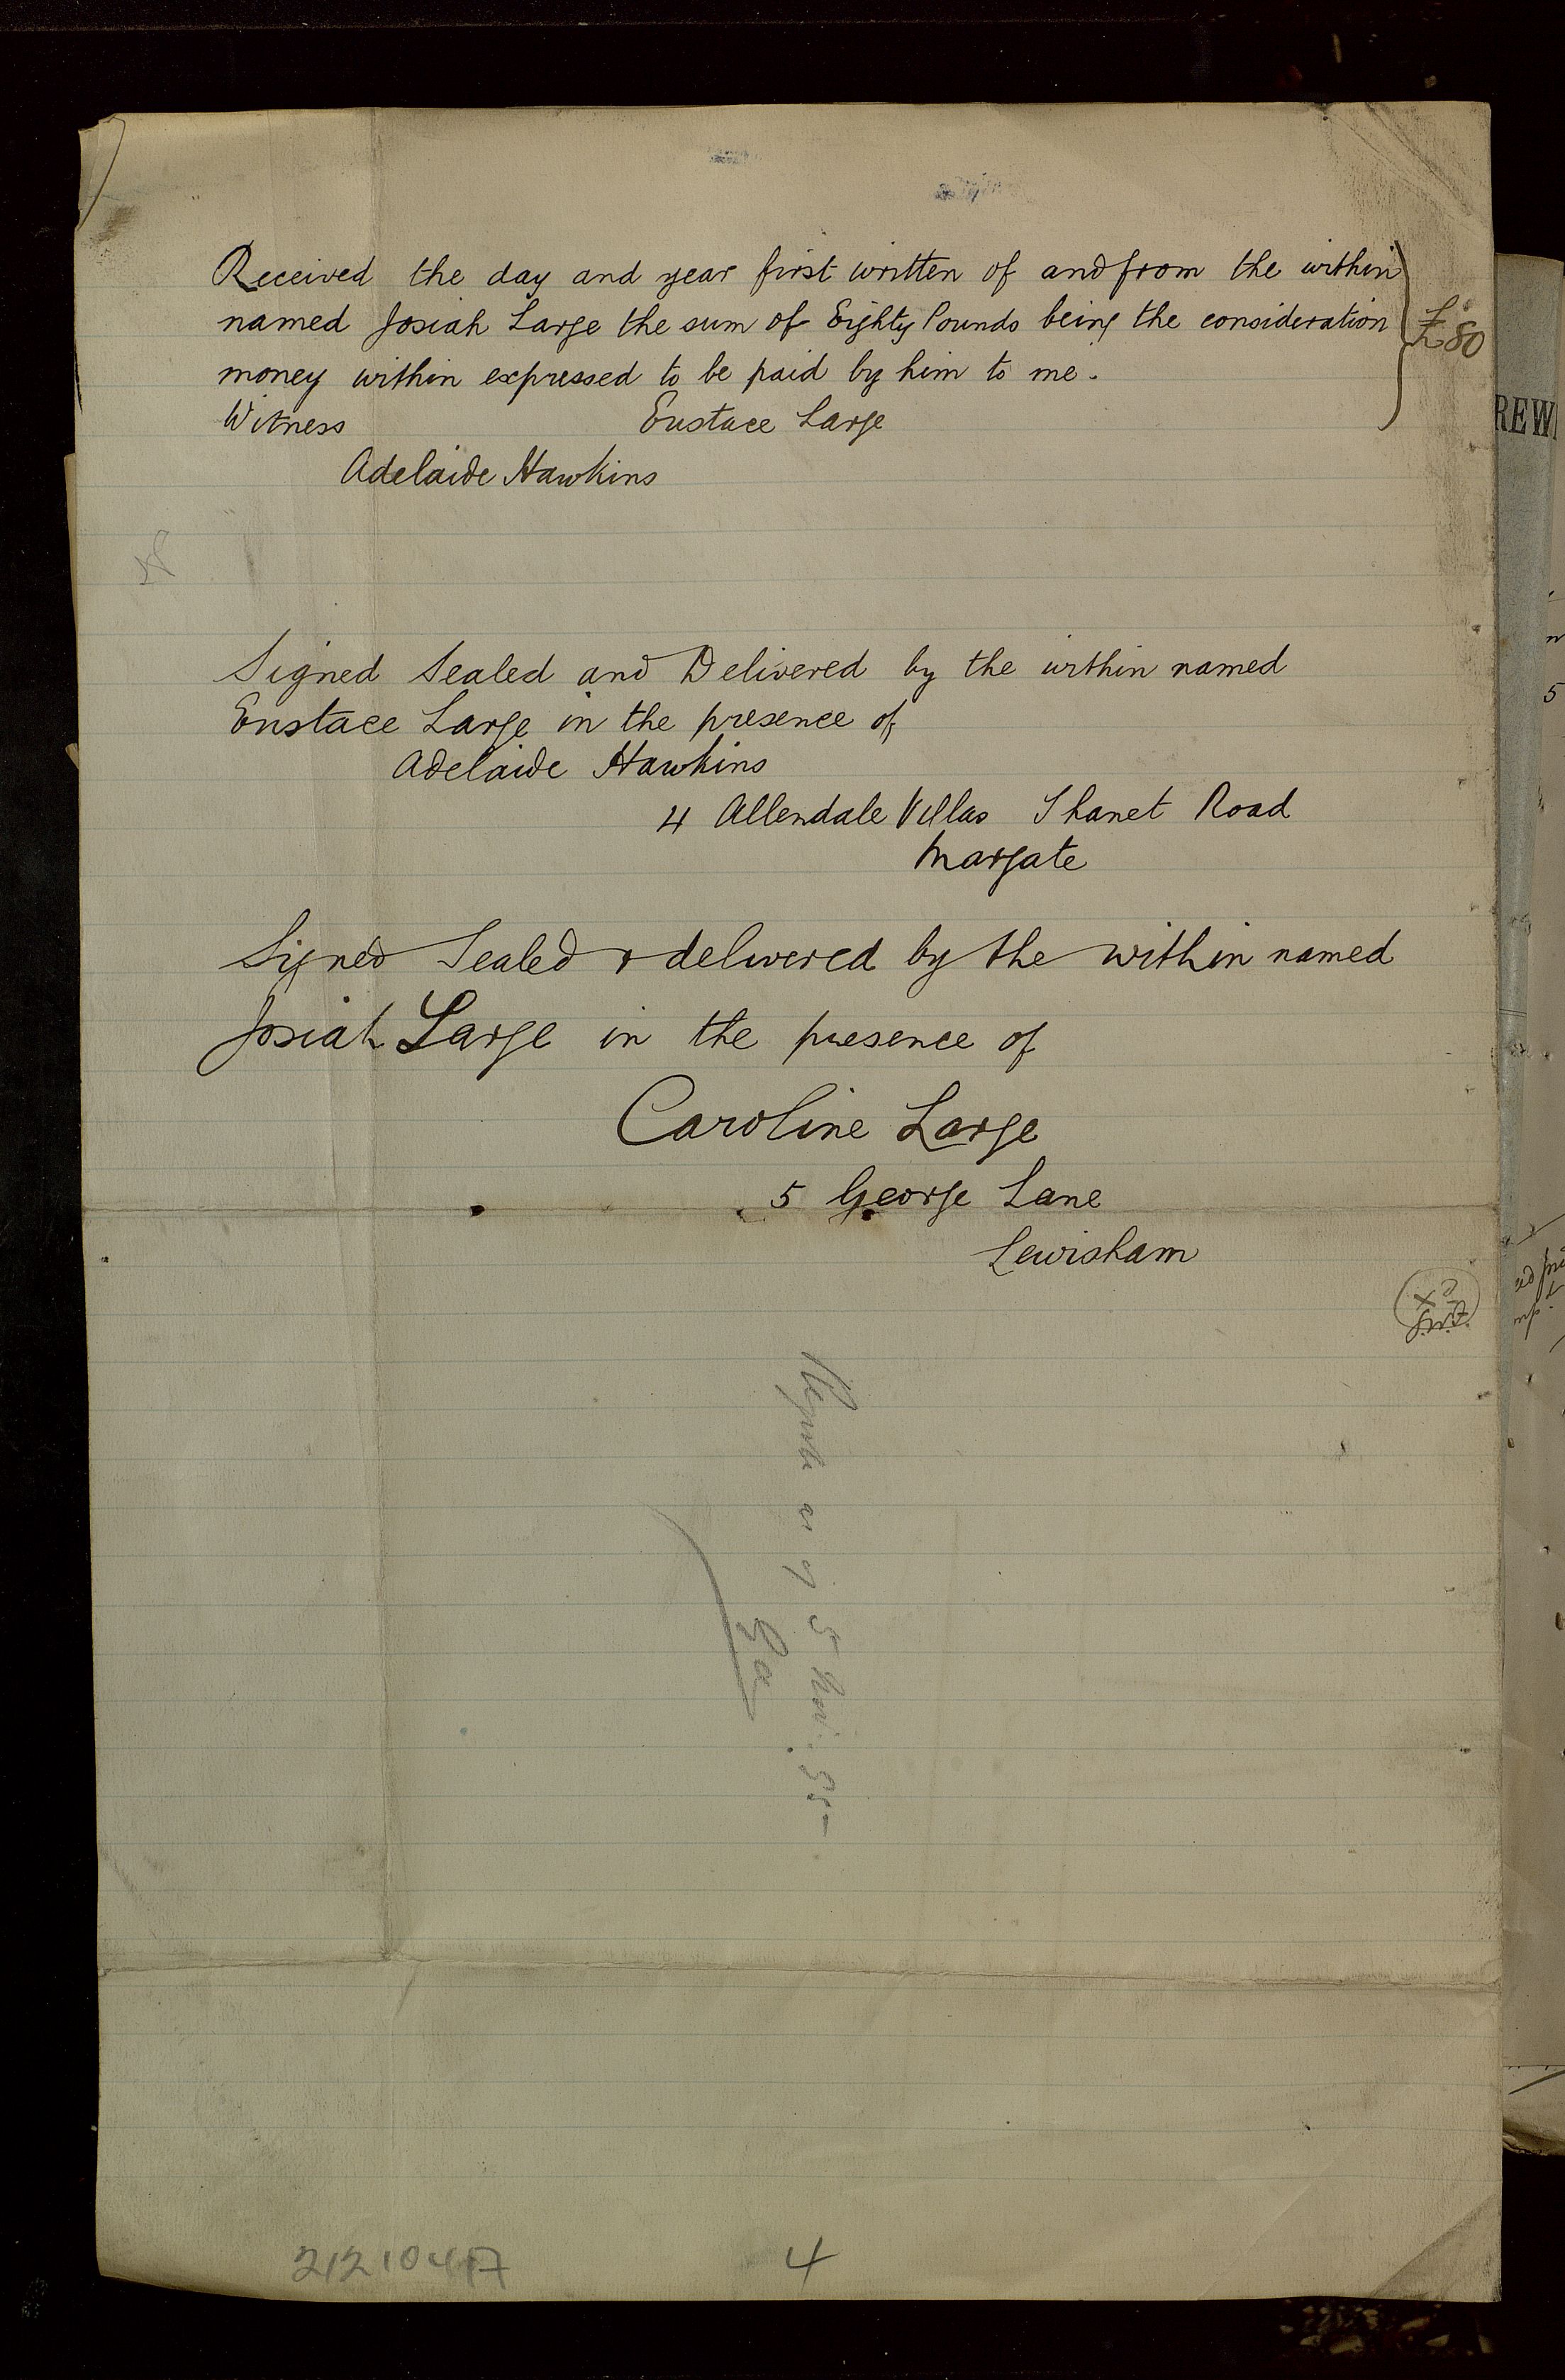 Received the day and year first written of and from the within
named Josiah Large the sum of Eighty Pounds being the consideration
money within expressed to be paid by him to me.
£80
Witness Eustace Large
Adelaide Hawkins
Signed Sealed and Delivered by the within named
Eustace Large in the presence of
Adelaide Hawkins
4 Allendale Villas Thanet Road
Margate
Signed Sealed & delivered by the within named
Josiah Large in the presence of
Caroline Large
5 George Lane
Lewisham
4
REW